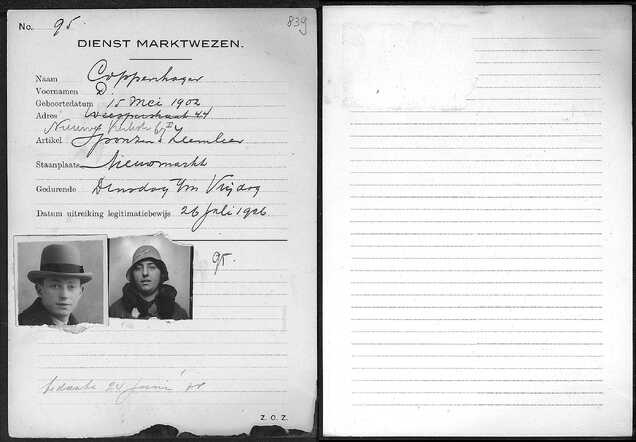 No. 95. 839
DIENST MARKTWEZEN.
Naam Coppenhager
Voornamen D.
Geboortedatum 15 Mei 1902
Adres Weesperstraat 44
Nieuwe Kerkstr 67 II
Artikel
Staanplaats Nieuwmarkt
Gedurende Dinsdag t/m Vrijdag
Datum uitreiking legitimatiebewijs 26 Juli 1926
95.
24 Juni
Z. O. Z.